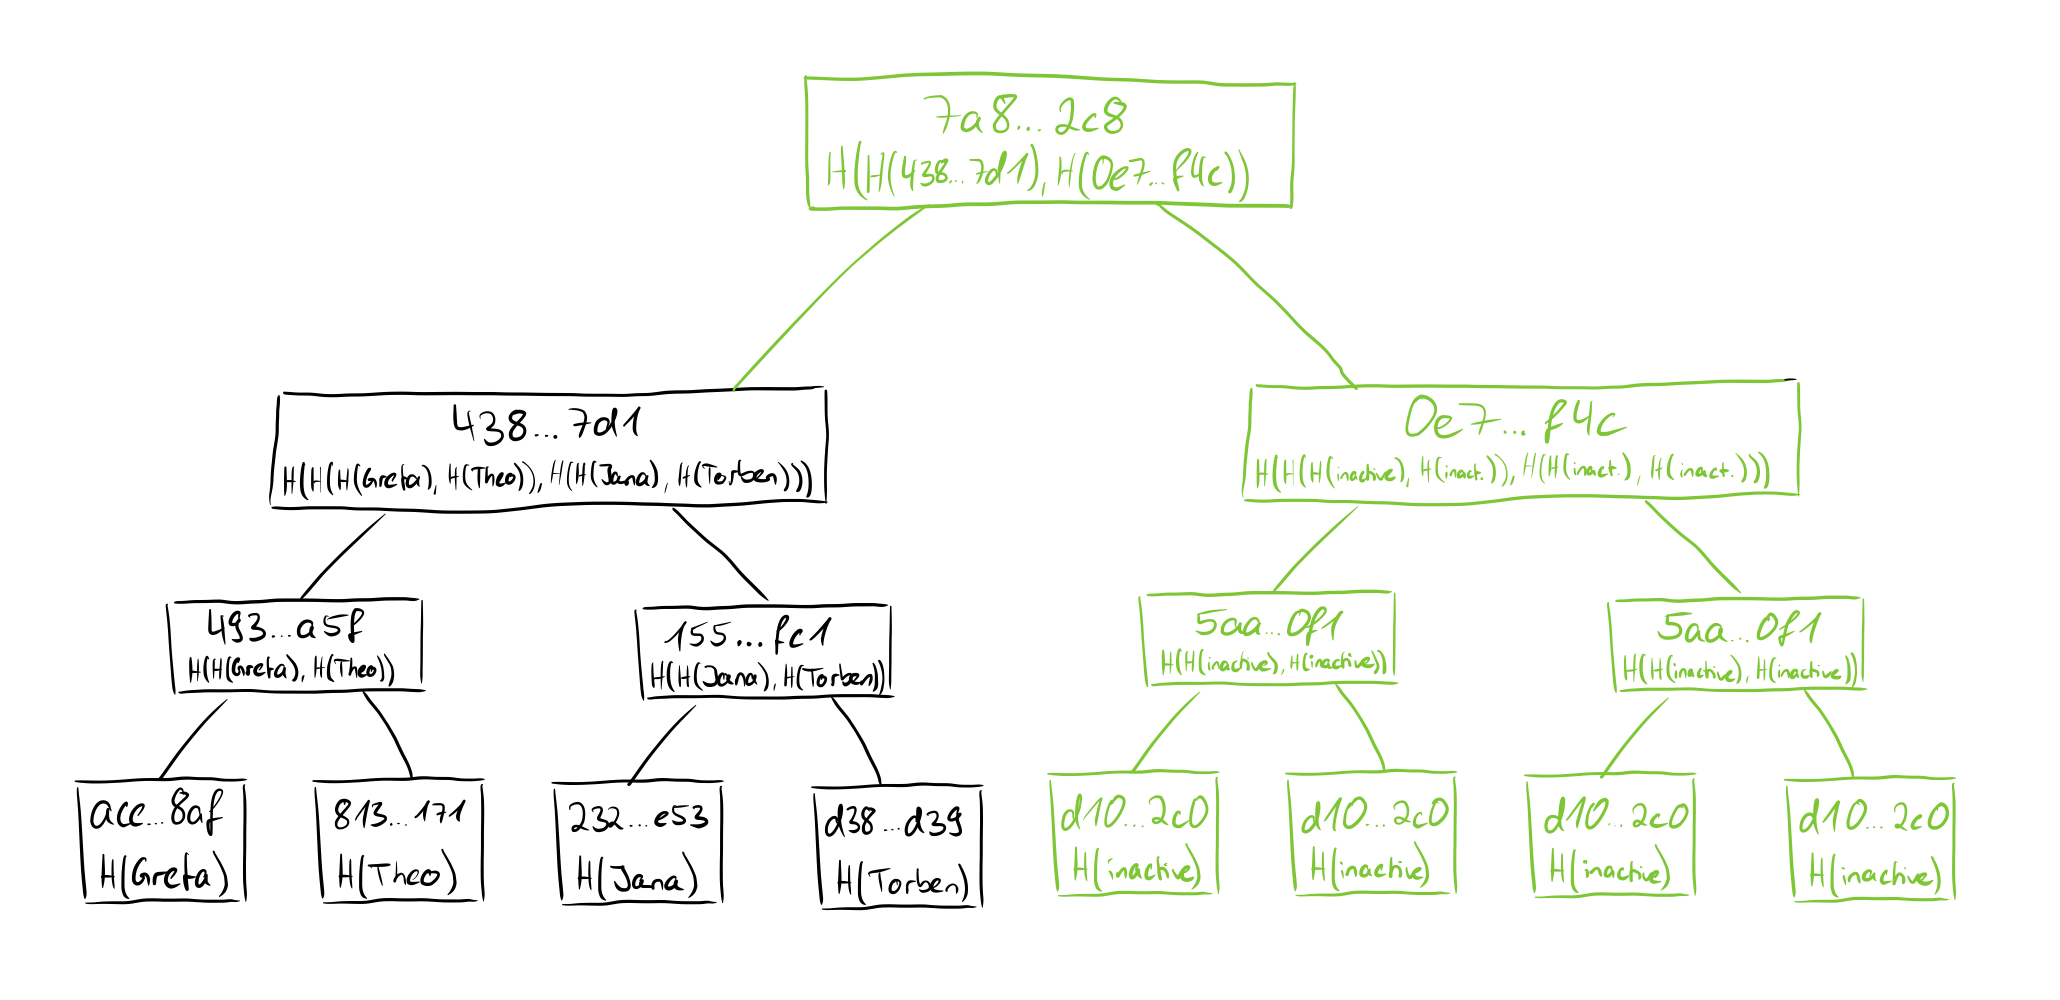 7a8...2c8
H(H(438...7d1), H(0e7...f4c))
438...7d1
H(H(H(Greta), H(Theo)), H(H(Jana), H(Torben)))
0e7...f4c
H(H(H(inactive), H(inact.)), H(H(inact.), H(inact.)))
493...a5f
H(H(Greta), H(Theo))
155...fc1
H(H(Jana), H(Torben))
5aa...0f1
H(H(inactive), H(inactive))
5aa...0f1
H(H(inactive), H(inactive))
acc...8af
H(Greta)
813...171
H(Theo)
232...e53
H(Jana)
d38...d39
H(Torben)
d10...2c0
H(inactive)
d10...2c0
H(inactive)
d10...2c0
H(inactive)
d10...2c0
H(inactive)